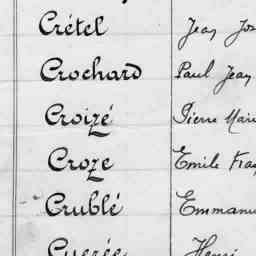 Crétel Jean Jos
Crochard Paul Jean
Croizé Pierre Mari
Croze Emile Fra
Crublé Emmanu
Cuerée Henri